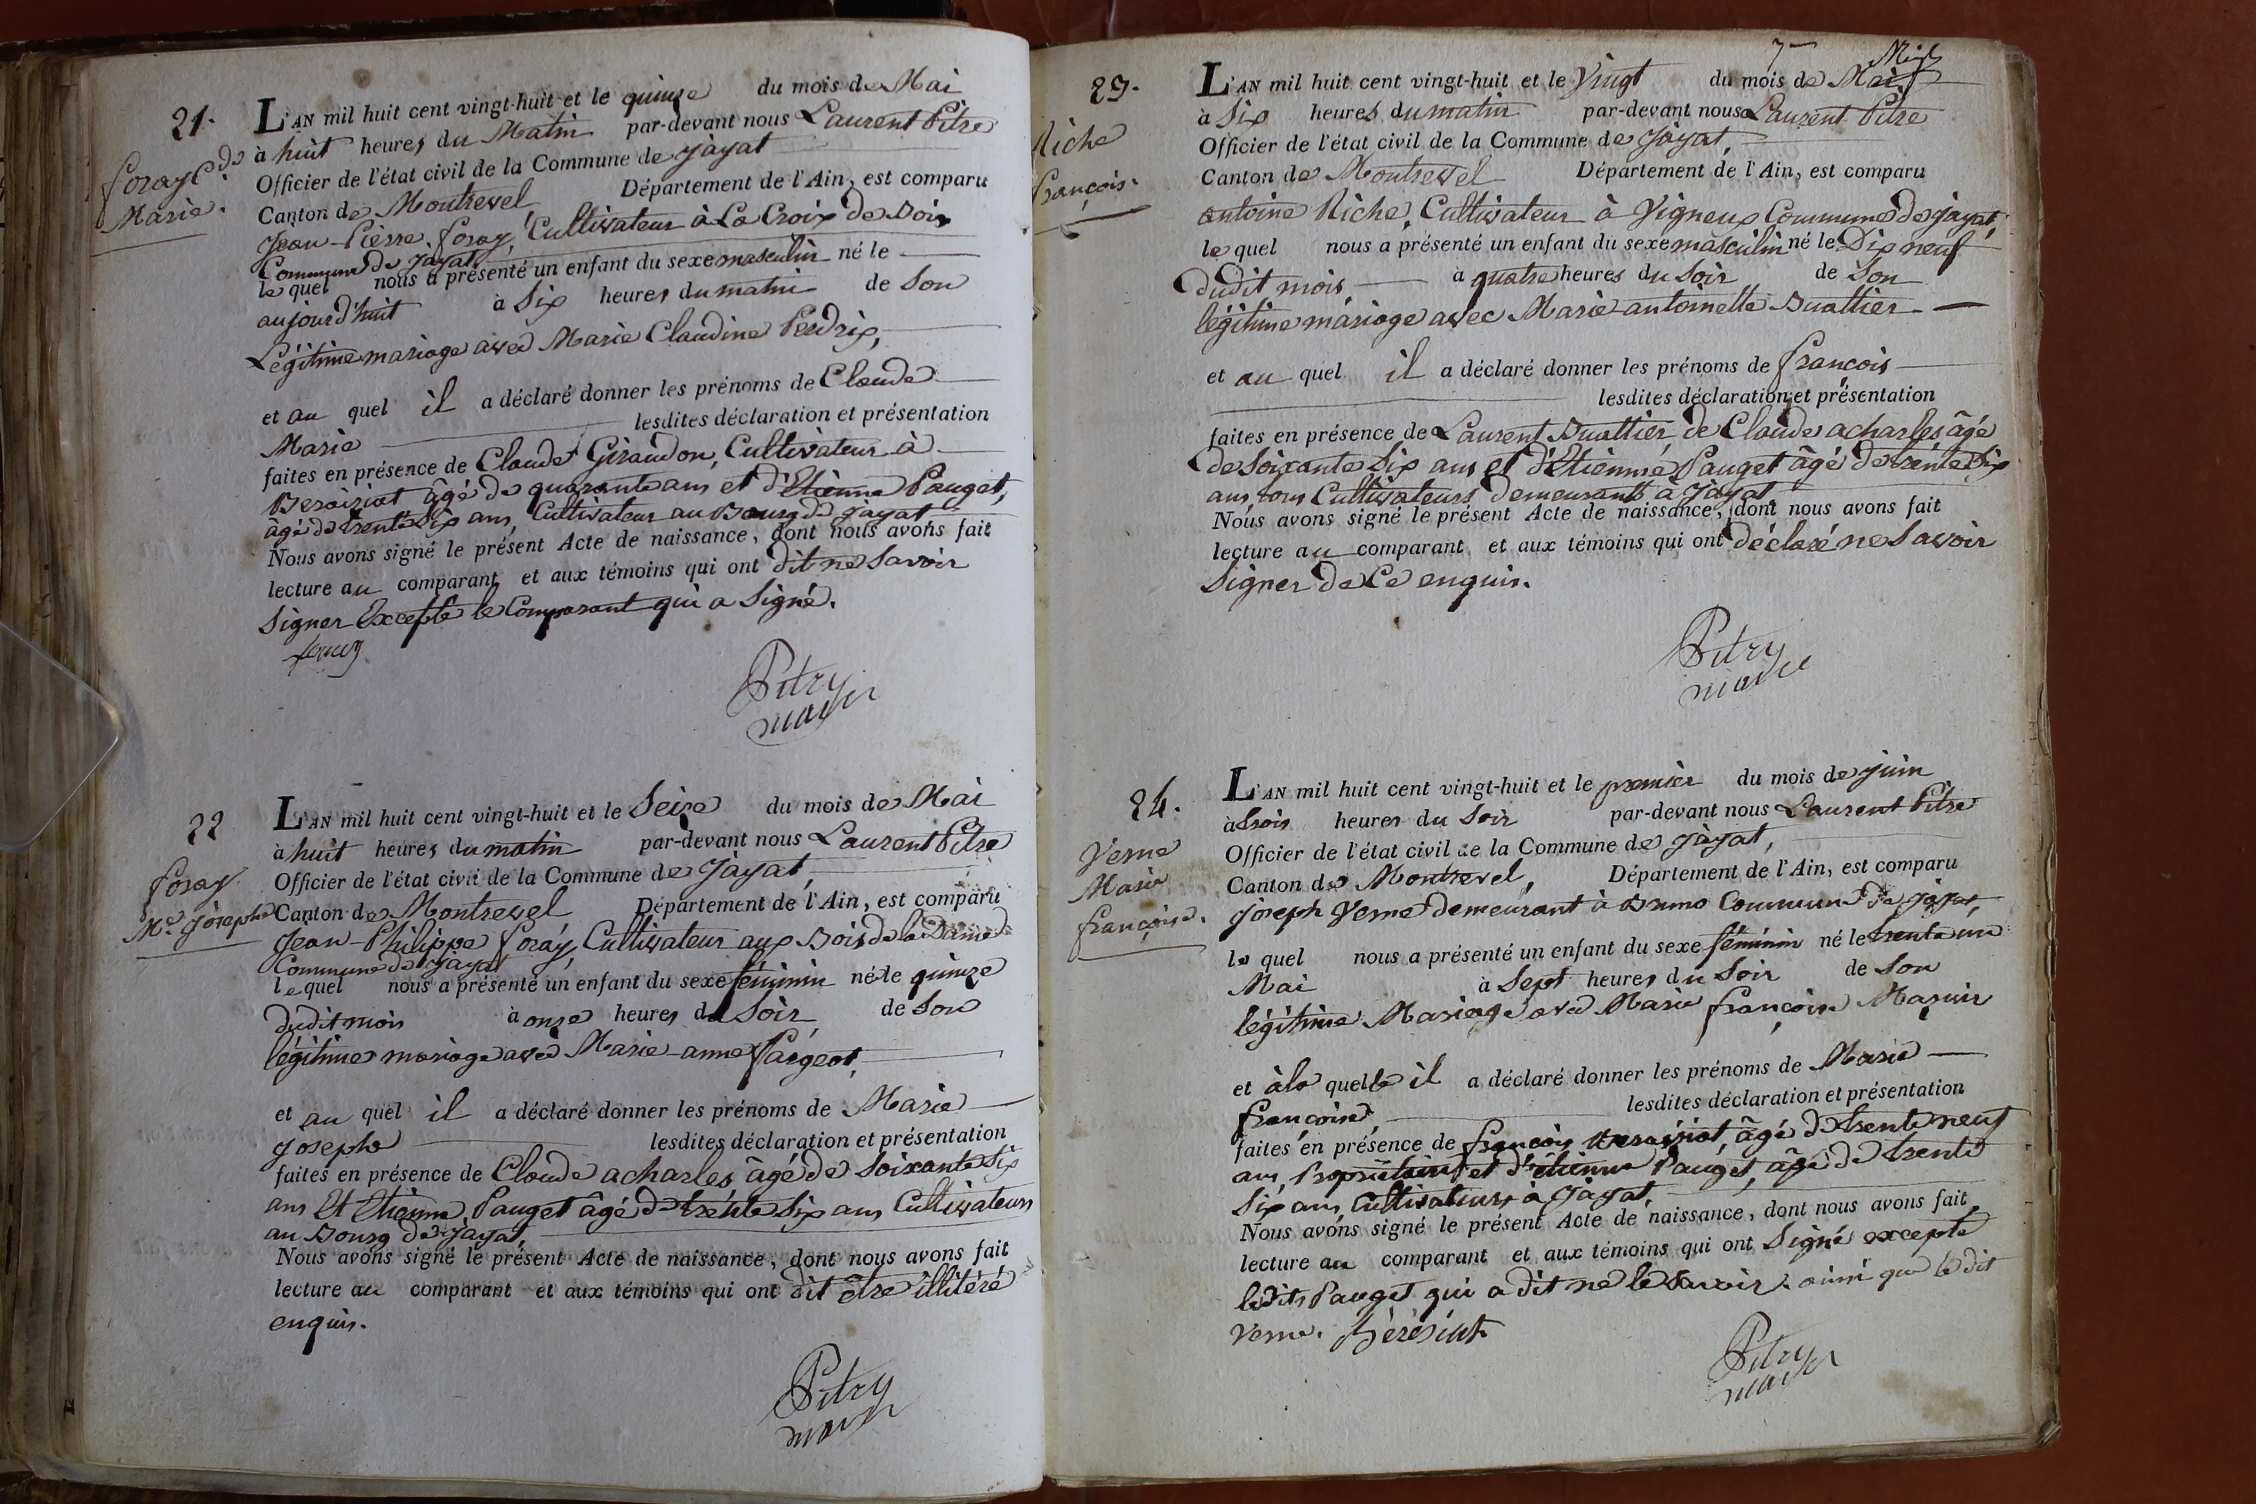 21.
foray C.de
Marie.
L'AN mil huit cent vingt-huit et le quinze du mois de Mai
à huit heures du Matin par-devant nous Laurent Pitre
Officier de l'état civil de la Commune de jayat
Canton de Montrevel Département de l'Ain, est comparu
Jean-Pierre foray, Cultivateur à La Croix de Bois
Commune de jayat
le quel nous a présenté un enfant du sexe masculin né le
aujourd'huit à Six heures du matin de Son
Légitime mariage avec Marie Claudine Perdrix,
et au quel il a déclaré donner les prénoms de Claude
Marie lesdites déclaration et présentation
faites en présence de Claude Giraudon, Cultivateur à
Bereiziat âgé de quarante ans et d'Etienne Pauget,
âgé de trente Six ans, Cultivateur au Bourg de jayat
Nous avons signé le présent Acte de naissance, dont nous avons fait
lecture au comparant et aux témoins qui ont dit ne Savoir
Signer Excepté le Comparant qui a Signé.
foray
Pitre
maire
22
foray
M.e josephe
L'AN mil huit cent vingt-huit et le Seize du mois de Mai
à huit heures du matin par-devant nous Laurent Pitre
Officier de l'état civil de la Commune de Jayat,
Canton de Montrevel Département de l'Ain, est comparu
Jean-Philippe foray, Cultivateur aux Bois de la Dame
Commune de jayat
le quel nous a présenté un enfant du sexe féminin né le quinze
dudit mois à onze heures du Soir de Son
légitime mariage avec Marie-anne Pargeot,
et au quel il a déclaré donner les prénoms de Marie
josephe lesdites déclaration et présentation
faites en présence de Claude acharles âgé de Soixante Six
ans Et Etienne Pauget âgé de trente Six ans Cultivateurs
au Bourg de jayat,
Nous avons signé le présent Acte de naissance, dont nous avons fait
lecture au comparant et aux témoins qui ont dit être illitéré
enquis.
Pitre
maire
7
23.
Riche
françois.
L'AN mil huit cent vingt-huit et le Vingt du mois de Mai
à Six heures du matin par-devant nous Laurent Pitre
Officier de l'état civil de la Commune de jayat,
Canton de Montrevel Département de l'Ain, est comparu
antoine Riche, Cultivateur à Vigneux Commune de jayat,
le quel nous a présenté un enfant du sexe masculin né le Dix neuf
dudit mois à quatre heures du Soir de Son
légitime mariage avec Marie antoinette Buattier
et au quel il a déclaré donner les prénoms de françois
lesdites déclaration et présentation
faites en présence de Laurent Buattier, de Claude acharles âgé
de Soixante Six ans et d'Etienne Pauget âgé de trente Six
ans, tous Cultivateurs demeurants à Jayat
Nous avons signé le présent Acte de naissance, dont nous avons fait
lecture au comparant et aux témoins qui ont déclaré ne Savoir
Signer de Ce enquis.
Pitre
maire
24.
Verne
Marie
françoise.
L'AN mil huit cent vingt-huit et le premier du mois de juin
à trois heures du Soir par-devant nous Laurent Pitre
Officier de l'état civil de la Commune de jayat,
Canton de Montrevel, Département de l'Ain, est comparu
joseph Verne demeurant à Bruno Commune de jayat,
le quel nous a présenté un enfant du sexe féminin né le trente un
Mai à Sept heures du Soir de Son
légitime Mariage avec Marie françoise
et à la quelle il a déclaré donner les prénoms de Marie
françoise, lesdites déclaration et présentation
faites en présence de françois Bereiziat, âgé de trente neuf
ans, Propriétaire et d'étienne Pauget, âgé de trente
Six ans, Cultivateurs à Jayat,
Nous avons signé le présent Acte de naissance, dont nous avons fait
lecture au comparant et aux témoins qui ont Signé excepté
ledit Pauget qui a dit ne le Savoir. ainsi que le dit
Verne.
Pitre
maire